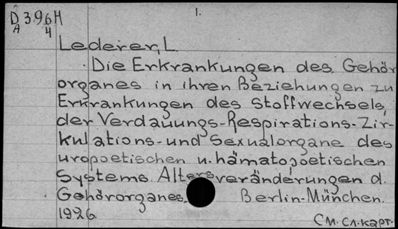 D 396H 1.
A 4
Lederer, L.
Die Erkrankungen des Gehör
organes in ihren Beziehungen zu
Erkrankungen des Stoffwechsels,
der Verdauungs-Respirations-Zir-
kulations-und Sexualorgane des
uropoetischen u. hämatopoetischen
Systems. Altersveränderungen d.
Gehörorganes. Berlin-München.
1926
См. сл. карт.